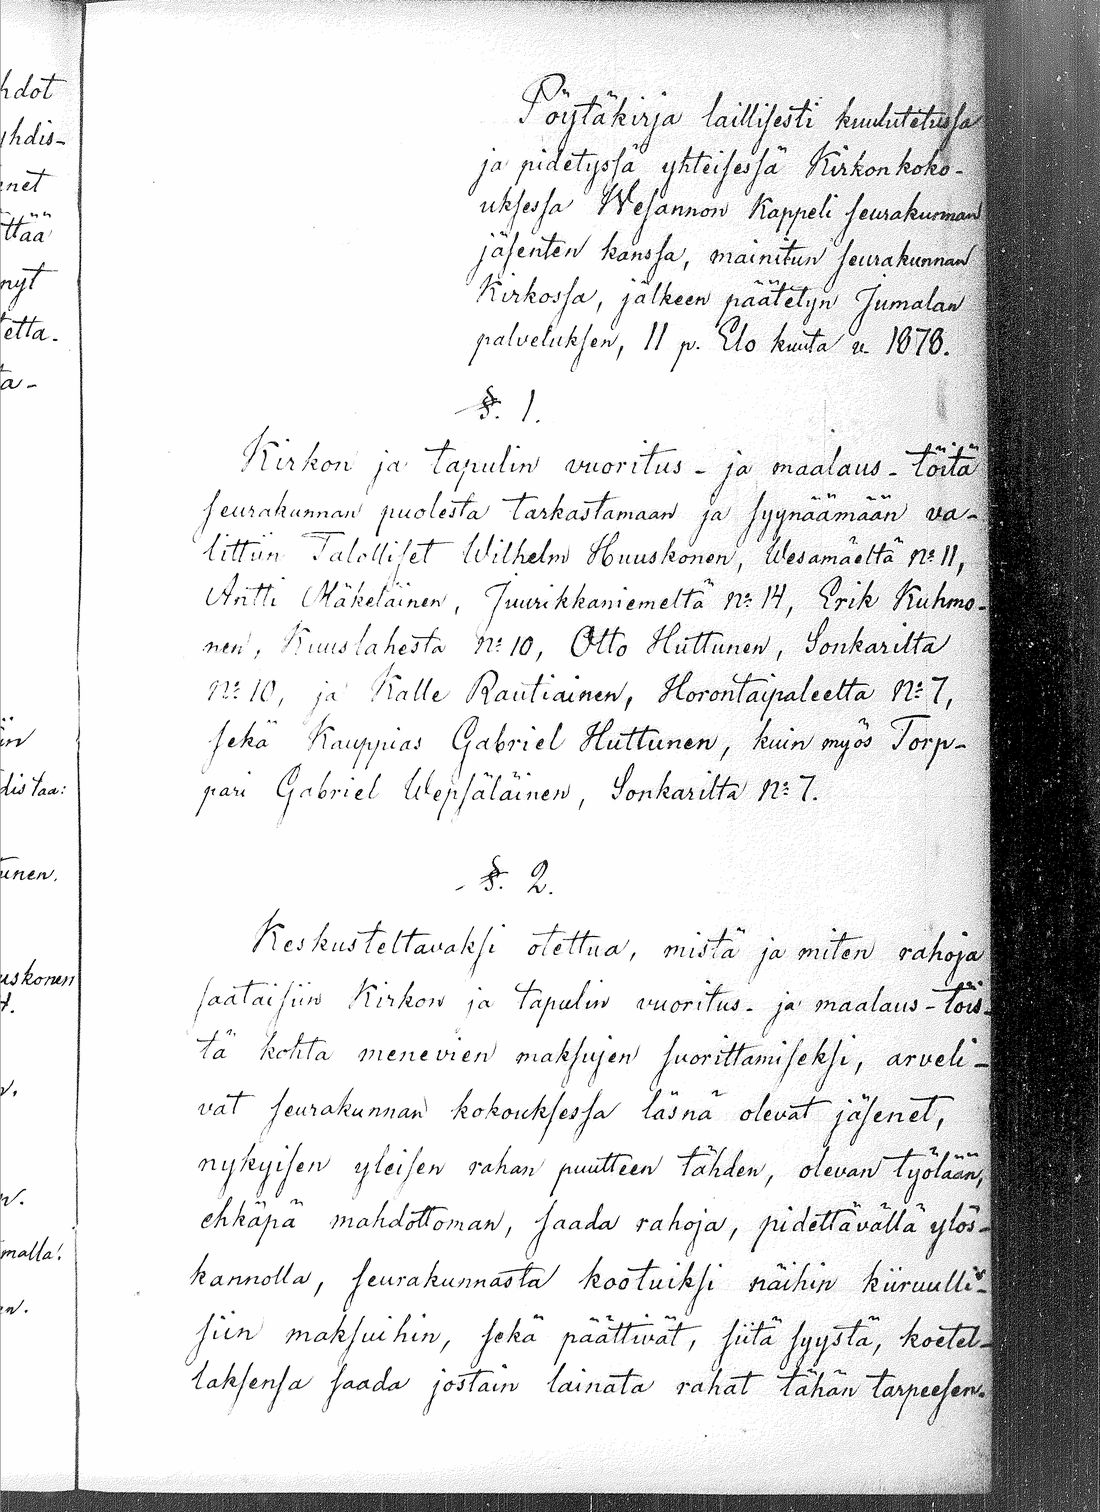 Pöytäkirja laillisesti kuulutetussa
ja pidetyssä yhteisessä Kirkonkoko-
uksessa Wesannon Kappeli seurakunnan
jäsenten kanssa, mainitun seurakunnan
Kirkossa, jälkeen päätetyn Jumalan
palveluksen, 11 p. Elo kuuta v. 1878.
§. 1.
Kirkon ja tapulin vuoritus- ja maalaus-töitä
seurakunnan puolesta tarkastamaan ja syynäämään va-
littiin Talolliset Wilhelm Huuskonen, Wesamäeltä No 11,
Antti Mäkeläinen, Juurikkaniemeltä No 14, Erik Kuhmo-
nen, Kuuslahesta No 10, Otto Huttunen, Sonkarilta
No 10, ja Kalle Rautiainen, Horontaipaleelta No 7,
sekä Kauppias Gabriel Huttunen, kuin myös Torp-
pari Gabriel Wepsäläinen, Sonkarilta No 7.
§. 2.
Keskusteltavaksi otettua, mistä ja miten rahoja
saataisiin Kirkon ja tapulin vuoritus- ja maalaus-töis-
tä kohta menevien maksujen suorittamiseksi, arveli-
vat seurakunnan kokouksessa läsnä olevat jäsenet,
nykyisen yleisen rahan puutteen tähden, olevan työlään,
ehkäpä mahdottoman, saada rahoja, pidettävällä ylös-
kannolla, seurakunnasta kootuiksi näihin kiiruulli-
siin maksuihin, sekä päättivät, siitä syystä, koetel-
laksensa saada jostain lainata rahat tähän tarpeesen.
hdot
yhdis-
net
ttää
nyt
tetta.
ta-
in
distaa:
unen.
uskonen
t.
n.
n.
malla.
en.